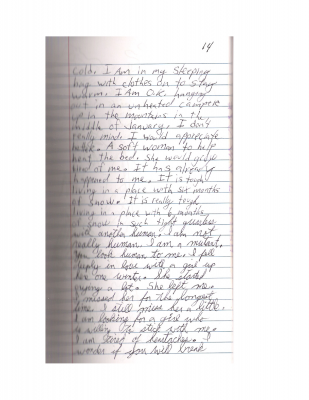 14
cold. I Am in my sleeping
bag with clothes on to stay
warm. I Am O.K. hanging
out in an unheated camper
up in the mountains in the
middle of January. I don't
really mind. I would appreciate
A soft woman to help
heat the bed. She would grow
tired of me. It has already
happened to me. It is tough
living in a place with six months
of snow. It is really tough
living in a place with 6 months
of snow in such tight quarters
with another human. I am not
really human. I am a mutant.
You look human to me. I fell
deeply in love with a girl up
here one winter. She started
crying a lot. She left me.
I missed her for the longest
time. I still miss her a little.
I am looking for a girl who
is willing to stick with me.
I am tired of headaches. I
wonder if you will break